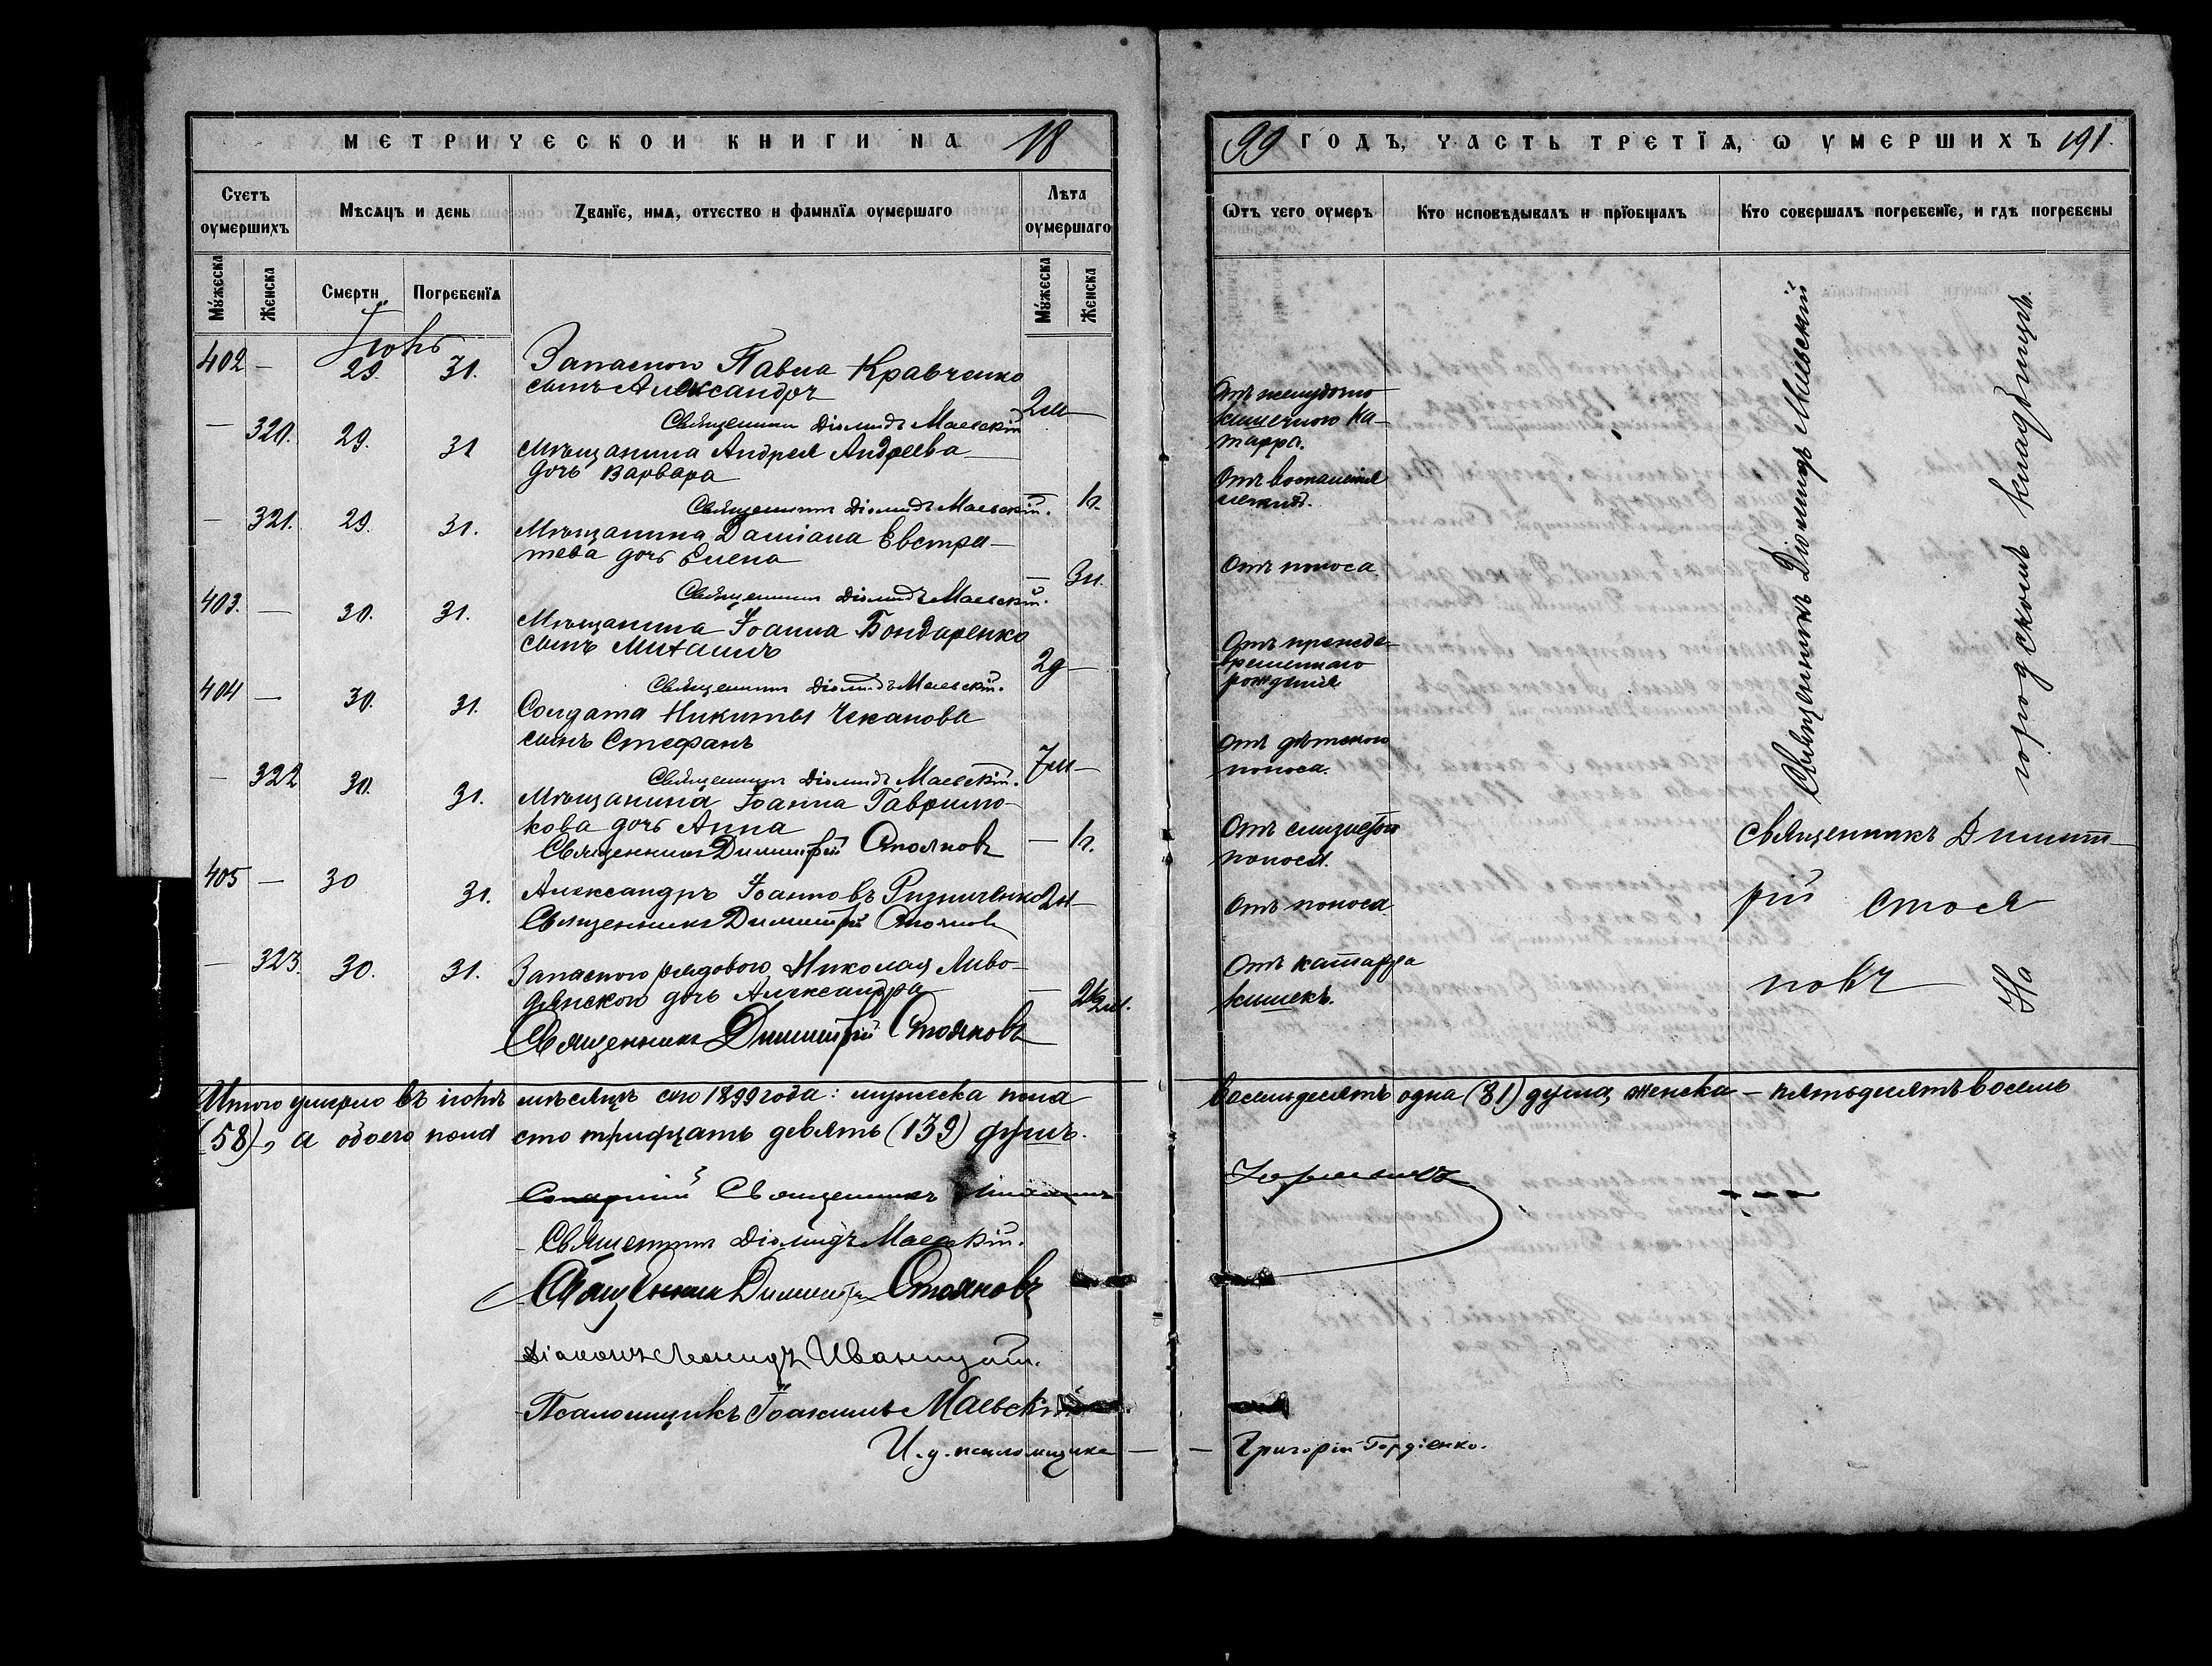 МЕТРИЧЕСКОЙ КНИГИ НА 18
Счетъ оумершихъ
Мѣсяцъ и день
Званїе, имя, отчество и фамилїя оумершаго
Лѣта оумершаго
Мужеска
Женска
Смерти
Погребенїя
Мужеска
Женска
402 — 29. 31. Запасного Павла Кравченко
сынъ Александръ
2м —
Священникъ Діомидъ Маевскій
— 320. 29. 31 Мѣщанина Андрея Андреева
дочь Варвара
— 1г.
Священникъ Діомидъ Маевскій.
— 321. 29. 31. Мѣщанина Даміана Евстра-
тева дочь Елена
— 3н.
Священникъ Діомидъ Маевскій.
403. — 30. 31. Мѣщанина Іоанна Бондаренко
сынъ Михаилъ
2д —
Священникъ Діомидъ Маевскій.
404 — 30. 31. Солдата Никиты Чеканова
сынъ Стефанъ
7м —
Священникъ Діомидъ Маевскій.
— 322 30. 31. Мѣщанина Іоанна Гаврило-
кова дочь Анна
— 1г.
Священникъ Димитрій Стояновъ
405 — 30 31. Александръ Іоанновъ Ризниченко 2н —
Священникъ Димитрій Стояновъ
— 323. 30. 31. Запасного рядового Николая
дочь Александра
— 2½м.
Священникъ Димитрій Стояновъ
Итого умерло въ іюлѣ мѣсяцѣ сего 1899 года: мужеска пола
(58), а обоего пола сто тридцать девять (139) душъ.
Священникъ
Священникъ Діомидъ Маевскій.
Священникъ Димитрій Стояновъ
Діаконъ Леонидъ Иваницкій.
Псаломщикъ Іоакимъ Маевскій
И. д. псаломщика —
99 ГОДЪ, ЧАСТЬ ТРЕТЇЯ, Ѡ УМЕРШИХЪ 191.
Ѡтъ чего оумеръ
Кто исповѣдывалъ и прїобщалъ
Кто совершалъ погребенїе, и гдѣ погребены
Отъ желудочно
кишечного ка-
тарра.
Отъ воспаленія
легкихъ.
Отъ поноса.
Отъ прежде-
временнаго
рожденія
Отъ дѣтскаго
поноса.
Отъ слизистой
поноса.
Отъ поноса
Отъ катарра
кишекъ.
Священникъ Діомидъ Маевскій
Священникъ Димит-
рій Стоя
новъ
На городскомъ кладбищѣ.
восемьдесятъ одна (81) душа, женска — пятьдесятъ восемь
— Григорій Гордіенко.